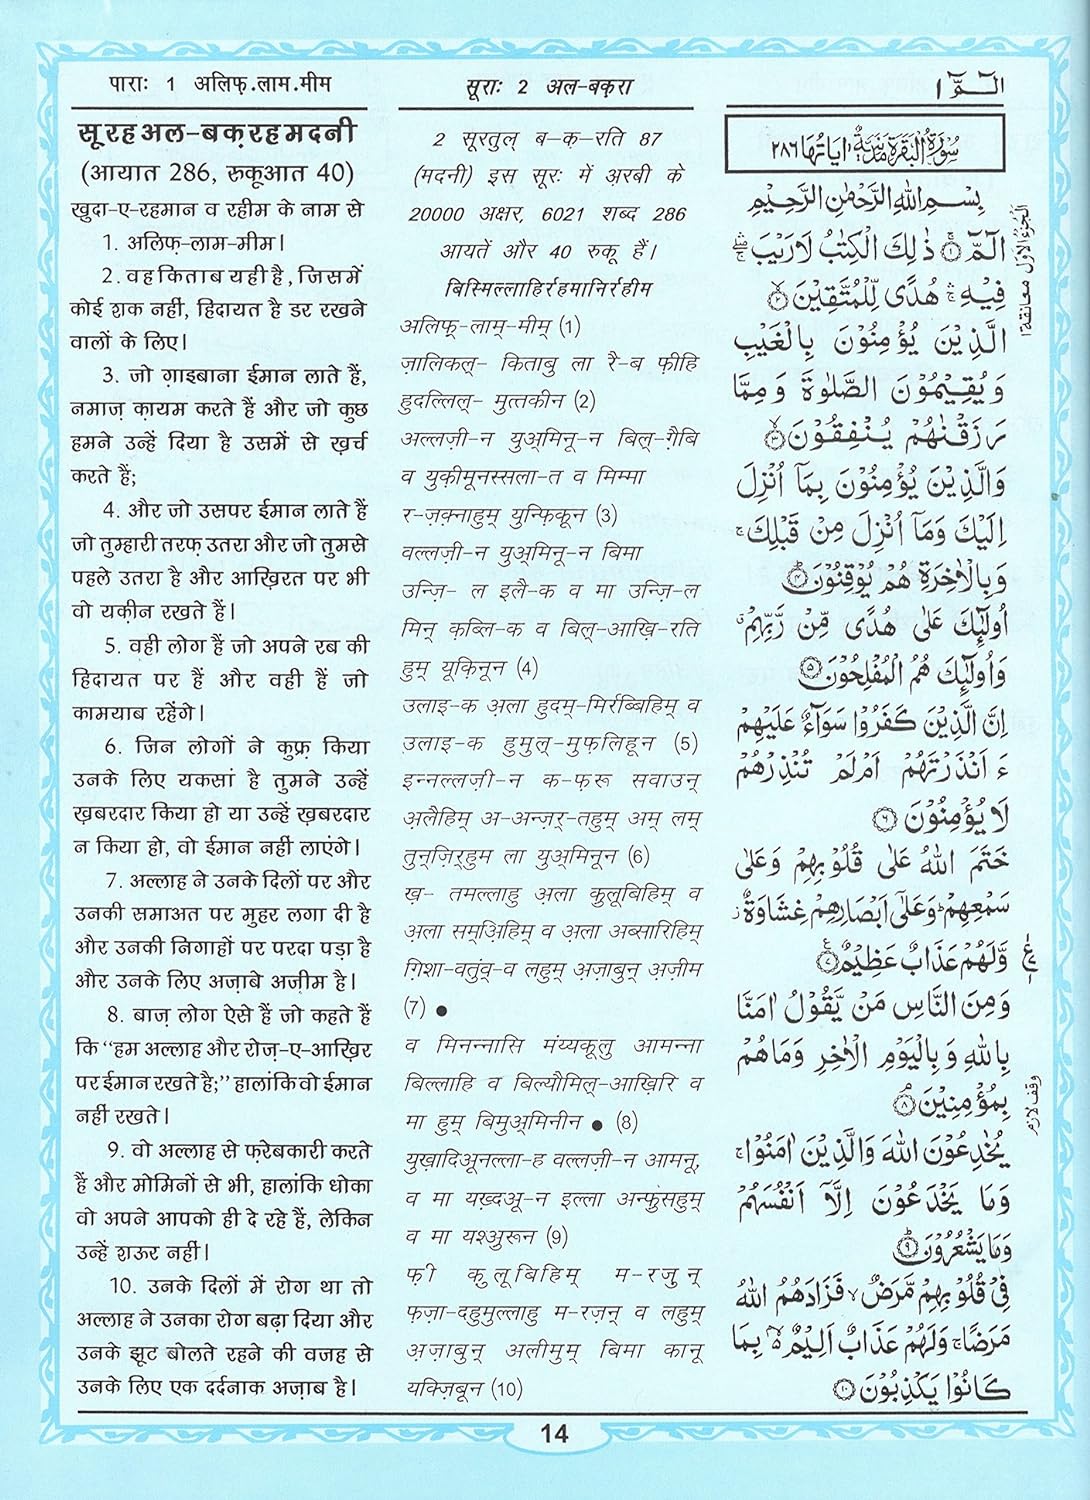 पाराः 1 अलिफ़.लाम.मीम
सूरहअल-बक़रहमदनी
(आयात 286, रुकूआत 40)
खुदा-ए-रहमान व रहीम के नाम से
1. अलिफ़-लाम-मीम।
2. वह किताब यही है, जिसमें
कोई शक नहीं, हिदायत है डर रखने
वालों के लिए।
3. जो ग़ाइबाना ईमान लाते हैं,
नमाज़ क़ायम करते हैं और जो कुछ
हमने उन्हें दिया है उसमें से ख़र्च
करते हैं;
4. और जो उसपर ईमान लाते हैं
जो तुम्हारी तरफ़ उतरा और जो तुमसे
पहले उतरा है और आख़िरत पर भी
वो यक़ीन रखते हैं।
5. वही लोग हैं जो अपने रब की
हिदायत पर हैं और वही हैं जो
कामयाब रहेंगे।
6. जिन लोगों ने कुफ़्र किया
उनके लिए यकसां है तुमने उन्हें
ख़बरदार किया हो या उन्हें ख़बरदार
न किया हो, वो ईमान नहीं लाएंगे।
7. अल्लाह ने उनके दिलों पर और
उनकी समाअत पर मुहर लगा दी है
और उनकी निगाहों पर परदा पड़ा है
और उनके लिए अज़ाबे अज़ीम है।
8. बाज़ लोग ऐसे हैं जो कहते हैं
कि "हम अल्लाह और रोज़-ए-आख़िर
पर ईमान रखते है;" हालांकि वो ईमान
नहीं रखते।
9. वो अल्लाह से फ़रेबकारी करते
हैं और मोमिनों से भी, हालांकि धोका
वो अपने आपको ही दे रहे हैं, लेकिन
उन्हें शऊर नहीं।
10. उनके दिलों में रोग था तो
अल्लाह ने उनका रोग बढ़ा दिया और
उनके झूट बोलते रहने की वजह से
उनके लिए एक दर्दनाक अज़ाब है।
सूराः 2 अल-बक़रा
2 सूरतुल् ब-क़-रति 87
(मदनी) इस सूरः में अ़रबी के
20000 अक्षर, 6021 शब्द 286
आयतें और 40 रुकू हैं।
बिस्मिल्लाहिर्रहमानिर्रहीम
अलिफ्-लाम्-मीम् (1)
ज़ालिकल्- किताबु ला रै-ब फ़ीहि
हुदल्लिल्- मुत्तकीन (2)
अल्लज़ी-न युअ्मिनू-न बिल्-ग़ैबि
व युक़ीमूनस्सला-त व मिम्मा
र-ज़क़्नाहुम् युन्फ़िकून (3)
वल्लज़ी-न युअ्मिनू-न बिमा
उन्ज़ि- ल इलै-क व मा उन्ज़ि-ल
मिन् क़ब्लि-क व बिल्-आखि़-रति
हुम् यूक़िनून (4)
उलाइ-क अ़ला हुदम्-मिर्रब्बिहिम् व
उलाइ-क हुमुल्-मुफ़लिहून (5)
इन्नल्लज़ी-न क-फ़रू सवाउन्
अ़लैहिम् अ-अन्ज़र्-तहुम् अम् लम्
तुन्ज़िर्हुम ला युअ्मिनून (6)
ख़- तमल्लाहु अ़ला कुलूबिहिम् व
अ़ला सम्अ़िहिम् व अ़ला अब्सारिहिम्
ग़िशा-वतुंव्-व लहुम् अ़ज़ाबुन् अ़ज़ीम
(7) ●
व मिनन्नासि मंय्यकूलु आमन्ना
बिल्लाहि व बिल्यौमिल्-आख़िरि व
मा हुम् बिमुअ्मिनीन ● (8)
युख़ादिअूनल्ला-ह वल्लज़ी-न आमनू,
व मा यख़्दअू-न इल्ला अन्फुसहुम्
व मा यश्अुरून (9)
फ़ी कुलूबिहिम् म-रजुन्
फ़ज़ा-दहुमुल्लाहु म-रज़न् व लहुम्
अ़ज़ाबुन् अलीमुम् बिमा कानू
यक्ज़िबून (10)
الٓـمّٓ ١
سُوْرَةُ الْبَقَرَةِ مَدَنِيَّةٌ اٰيَاتُهَا ٢٨٦
بِسْمِ اللّٰهِ الرَّحْمٰنِ الرَّحِيْمِ
الٓمّٓ ۚ ١ ذٰلِكَ الْكِتٰبُ لَا رَيْبَ ۛ
فِيْهِ ۛ هُدًى لِّلْمُتَّقِيْنَ ۙ ٢
الَّذِيْنَ يُؤْمِنُوْنَ بِالْغَيْبِ
وَيُقِيْمُوْنَ الصَّلٰوةَ وَمِمَّا
رَزَقْنٰهُمْ يُنْفِقُوْنَ ۙ ٣
وَالَّذِيْنَ يُؤْمِنُوْنَ بِمَآ اُنْزِلَ
اِلَيْكَ وَمَآ اُنْزِلَ مِنْ قَبْلِكَ ۚ
وَبِالْاٰخِرَةِ هُمْ يُوْقِنُوْنَ ؕ ٤
اُولٰٓئِكَ عَلٰى هُدًى مِّنْ رَّبِّهِمْ ۗ
وَاُولٰٓئِكَ هُمُ الْمُفْلِحُوْنَ ٥
اِنَّ الَّذِيْنَ كَفَرُوْا سَوَآءٌ عَلَيْهِمْ
ءَاَنْذَرْتَهُمْ اَمْ لَمْ تُنْذِرْهُمْ
لَا يُؤْمِنُوْنَ ٦
خَتَمَ اللّٰهُ عَلٰى قُلُوْبِهِمْ وَعَلٰى
سَمْعِهِمْ ؕ وَعَلٰٓى اَبْصَارِهِمْ غِشَاوَةٌ ز
وَّلَهُمْ عَذَابٌ عَظِيْمٌ ٧
وَمِنَ النَّاسِ مَنْ يَّقُوْلُ اٰمَنَّا
بِاللّٰهِ وَبِالْيَوْمِ الْاٰخِرِ وَمَا هُمْ
بِمُؤْمِنِيْنَ ۘ ٨
يُخٰدِعُوْنَ اللّٰهَ وَالَّذِيْنَ اٰمَنُوْا ۚ
وَمَا يَخْدَعُوْنَ اِلَّآ اَنْفُسَهُمْ
وَمَا يَشْعُرُوْنَ ؕ ٩
فِيْ قُلُوْبِهِمْ مَّرَضٌ ۙ فَزَادَهُمُ اللّٰهُ
مَرَضًا ۚ وَلَهُمْ عَذَابٌ اَلِيْمٌ ۙ بِمَا
كَانُوْا يَكْذِبُوْنَ ١٠
الجزء الاول معانقة ١
ع
وقف لازم
14